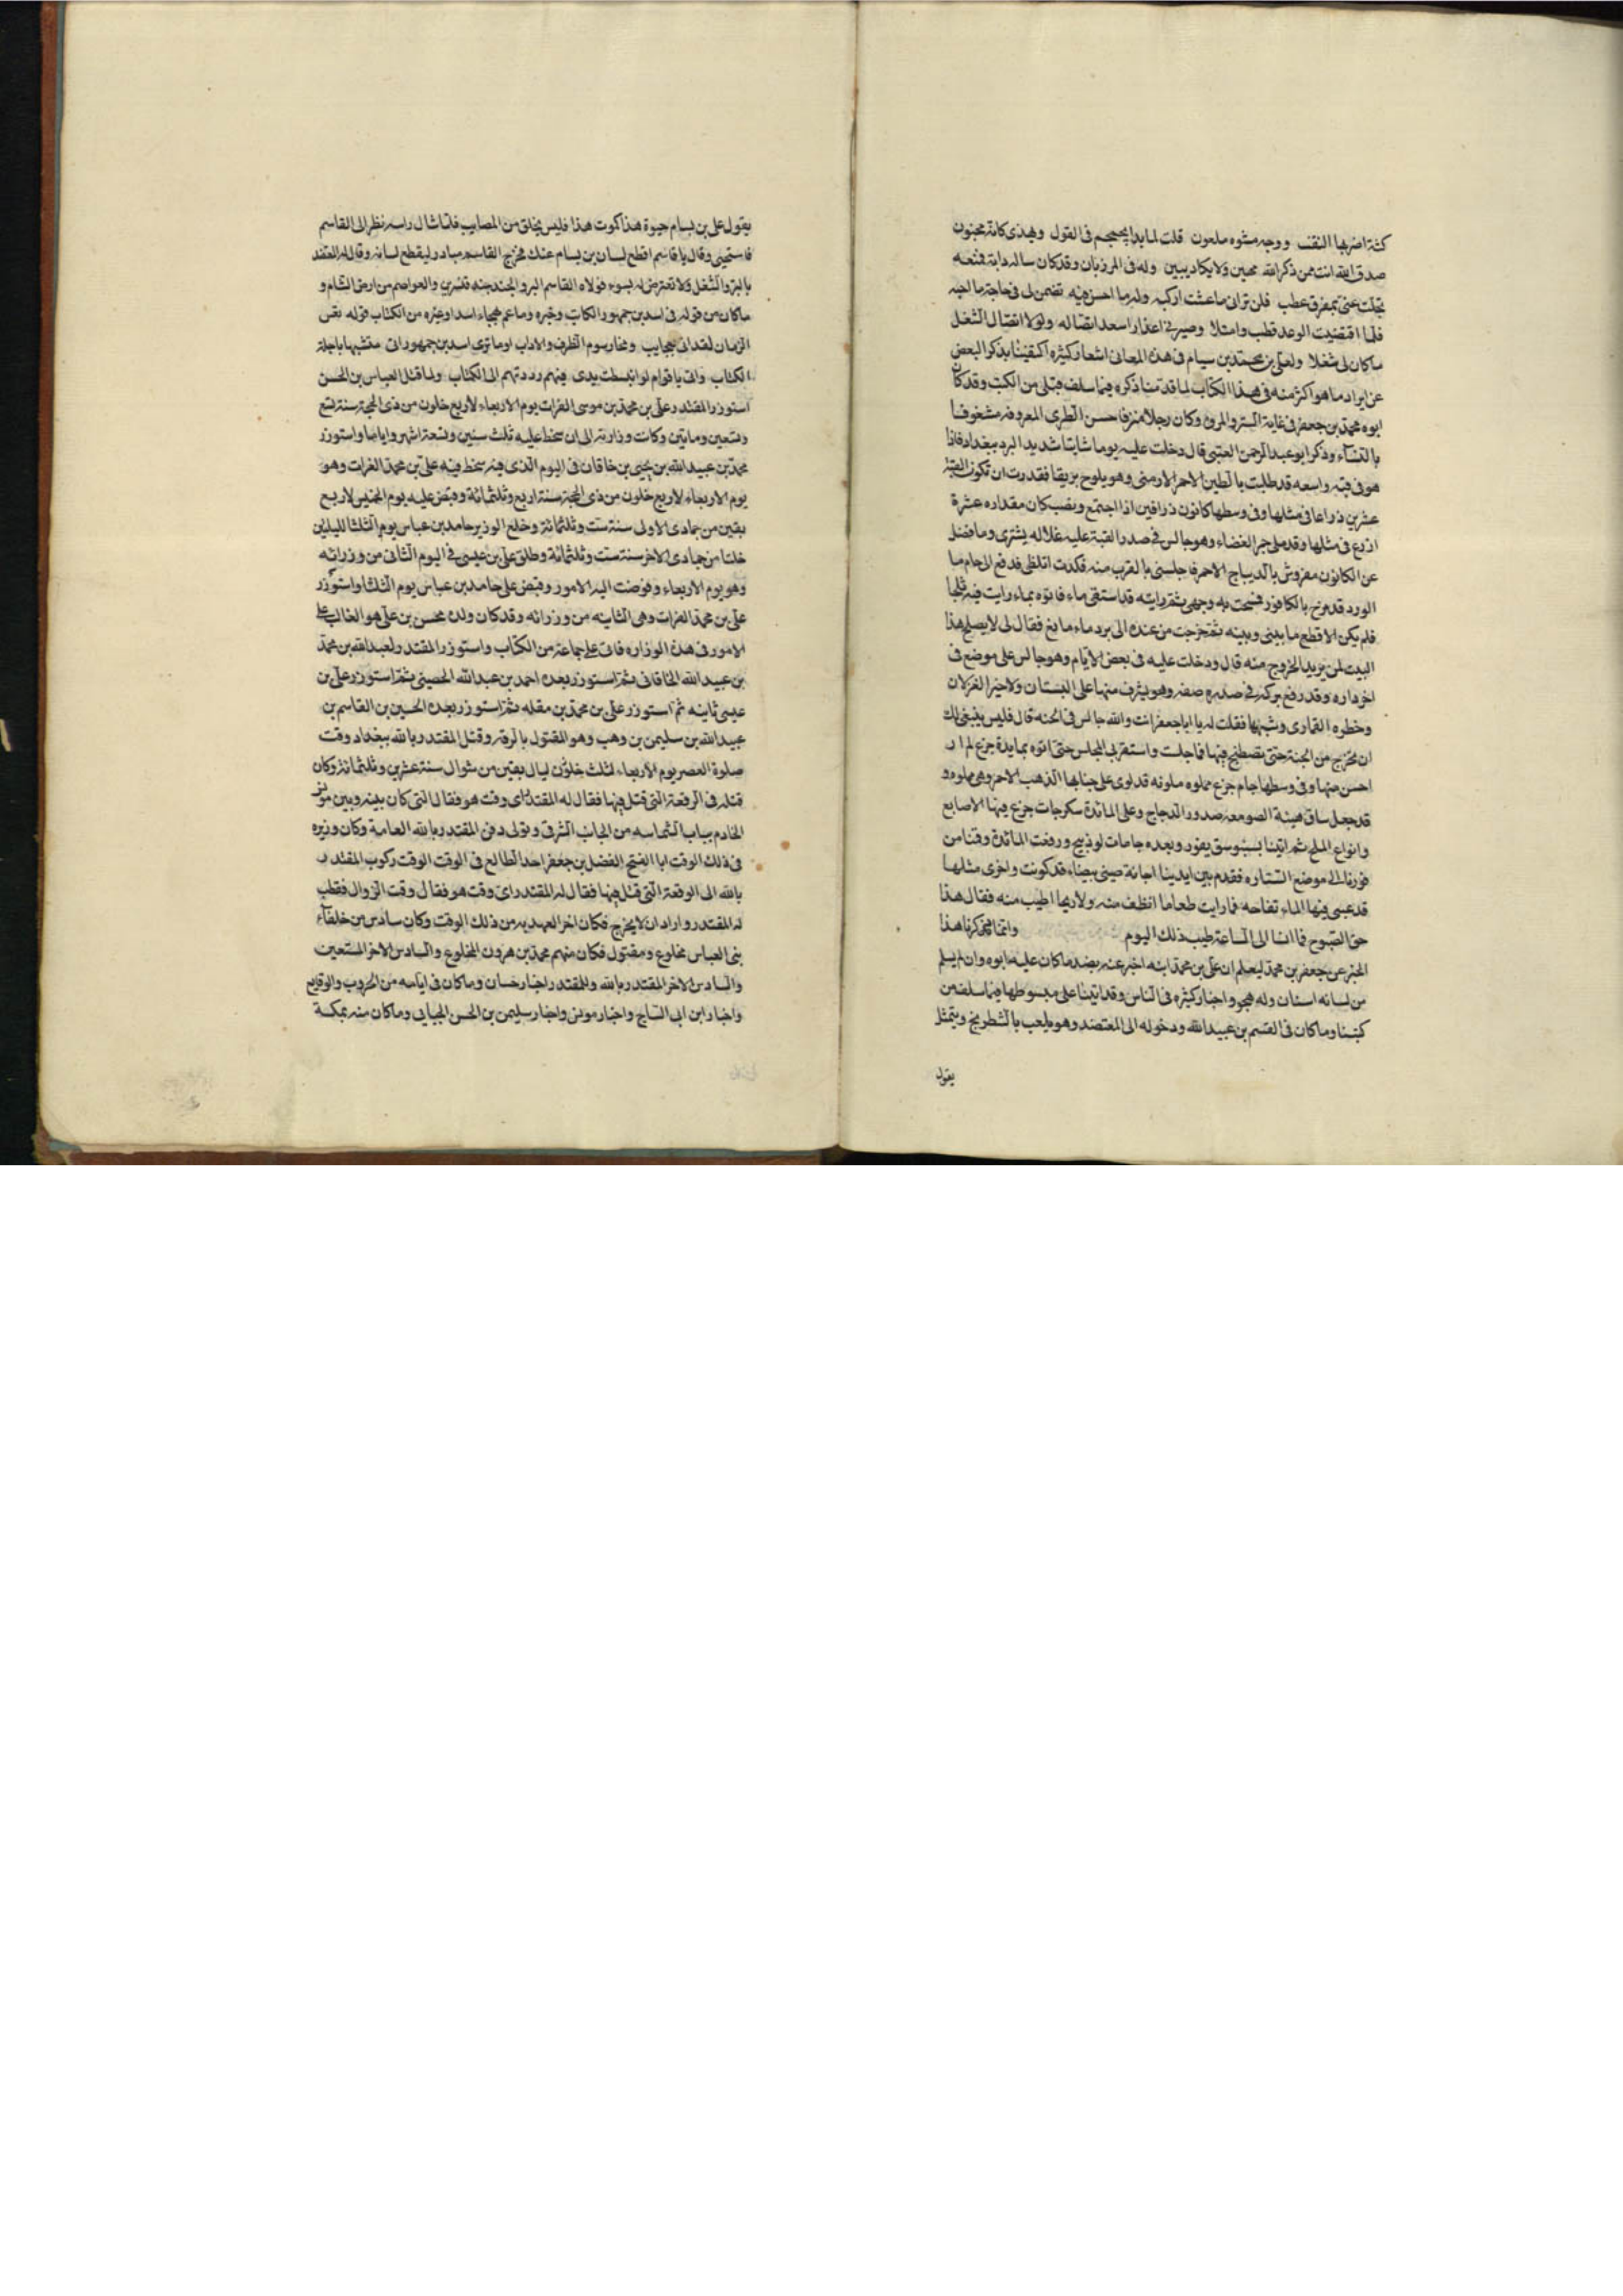 كثة اضر بها النقف ووجه مشوه ملعون قلت لما بدا يجمجم فى القول ويهذى كانه مجنون
صدق الله انت ممن ذكر الله مهين ولا يكاد يبين وله فى المرزبان وقد كان ساله دابة فمنعه
بخلت عنى بمقرف عطب فلن ترانى ما عشت اركبه وله ما احسن فيه تضمن لى فى حاجة ما احبه
فلما اقتضيت الوعد قطب وامتلا وصير فى اعذار اسعد اتصاله ولولا اتصال الشغل
ماكان لى شغلا ولعلى بن محمد بن بسام فى هذه المعانى اشعار كثيره اكتفينا بذكر البعض
عن ايراد ما هو اكثر منه فى هذا الكتاب لما قدمنا ذكره فيما سلف قبلى من الكتب وقد كان
ابوه محمد بن جعفر فى غاية الستر والمروة وكان رجلا مترفا حسن الطرى المعروفه مشغوفا
بالنساء وذكر ابو عبد الرحمن العتبى قال دخلت عليه يوما شاتيا شديد البرد ببغداد فاذا
هو فى قبه واسعه قد طليت بالطين الاحمر الارمنى وهو يلوح بريقا فقدرت ان تكون القبة
عشرين ذراعا فى مثلها وفى وسطها كانون ذرافين اذا اجتمع ونصب كان مقداره عشرة
اذرع فى مثلها وقد ملى جمر الغضاء وهو جالس فى صدر القبة عليه غلاله يشترى وما فضل
عن الكانون مفروش بالديباج الاحمر فاجلسنى بالقرب منه فكدت اتلظى فدفع الى جام ما
الورد قد مزج بالكافور فمسحت به وجهى ثم رايته قد استقى ماء فاتوه بماء رايت فيه ثلجا
فلم يكن الا قطع ما بينى وبينه ثم خرجت من عنده الى برد ماء مايع فقال لى لا يصلح هذا
البيت لمن يريد الخروج منه قال ودخلت عليه فى بعض الايام وهو جالس على موضع فى
اخر داره وقد رفع بركه فى صدره صفه وهو يشرف منها على البستان ولاحير الغزلان
وخطره القمارى وشبهها فقلت له يا ابا جعفر انت والله جالس فى الجنه قال فليس ينبغى لك
ان تخرج من الجنة حتى تصطبح فيها فما جلست واستقر بى المجلس حتى اتوه بمايدة جزع لم ار
احسن منها وفى وسطها جام جزع مملوه ملونه قد لوى على جناباها الذهب الاحمر وهى مملوه و
قد جعل ساق هيئة الصومعه صدور الدجاج وعلى المائدة سكرجات جزع فيها الاصابع
وانواع الملح ثم اتينا بسبوسق يفور وبعده جامات لوذينج ورفعت المائدة وقمنا من
فورنا الى موضع الستاره فقدم بين ايدينا اجانة صينى بيضاء قد كونت واخرى مثلها
قد عبى فيها الماء تفاحه فما رايت طعاما انظف منه ولا ريحا اطيب منه فقال هذا
حق الصبوح فما انسا الى الساعة طيب ذلك اليوم وانما ذكرنا هذا
الخبر عن جعفر بن محمد ليعلم ان على بن محمد ابنه اخبر عنه بضد ما كان عليه ابوه وان لم يسلم
من لسانه انسان وله هجو واخبار كثيره فى الناس وقد اتينا على مبسوطها فيما سلف من
كتبنا وما كان فى القسم بن عبيد الله ودخوله الى المعتضد وهو يلعب بالشطرنج ويتمثل
يقول
يقول على بن بسام حيوة هذا كموت هذا فليس يخلق من المصايب فلما شال راسه نظر الى القاسم
فاستحيى وقال يا قاسم اقطع لسان بن بسام عنك فخرج القاسم مبادر ليقطع لسانه وقال له المعتضد
بالبر والشغل ولا تعترض له بسوء فولاه القاسم البر والجند جند قنسرين والعواصم من ارض الشام و
ما كان من قوله فى اسد بن جمهور الكاتب وخبره وما عم بهجاء اسد وغيره من الكتاب قوله تعس
الزمان لقد اتى بعجايب ومحا رسوم الظرف والاداب اوما ترى اسد بن جمهور اتى متشبها باجلة
الكتاب واتى باقوام لو انبسطت يدى فيهم رددتهم الى الكتاب ولما قتل العباس بن الحسن
استوزر المقتدر على بن محمد بن موسى الفرات يوم الاربعاء لاربع خلون من ذى الحجة سنة تسع
وتسعين ومايتين وكانت وزارته الى ان سخط عليه ثلث سنين وتسعة اشهر واياما واستوزر
محمد بن عبيد الله بن يحيى بن خاقان فى اليوم الذى فيه سخط فيه على بن محمد الفرات وهو
يوم الاربعاء لاربع خلون من ذى الحجة سنة اربع وثلثمائة وقبض عليه يوم الخميس لاربع
بقين من جمادى الاولى سنة ست وثلثمائة وخلع الوزير حامد بن عباس يوم الثلثا لليلتين
خلتا من جمادى الاخر سنة ست وثلثمائة وطلق على بن عيسى فى اليوم الثانى من وزراته
وهو يوم الاربعاء وفوضت اليه الامور وقبض على حامد بن عباس يوم الثلثا واستوزر
على بن محمد الفرات وهى الثانيه من وزراته وقد كان ولده محسن بن على هو الغالب على
الامور فى هذه الوزاره فاتى على جماعة من الكتاب واستوزر المقتدر لعبد الله بن محمد
بن عبيد الله الخاقانى ثم استوزر بعده احمد بن عبد الله الحصينى ثم استوزر على بن
عيسى ثانيه ثم استوزر على بن محمد بن مقله ثم استوزر بعده الحسين بن القاسم بن
عبيد الله بن سليمن بن وهب وهو المقتول بالرقه وقتل المقتدر بالله ببغداد وقت
صلوة العصر يوم الاربعاء لثلث خلون ليال بقين من شوال سنة عشرين وثلثمائة وكان
قتله فى الرقعة التى قتل فيها فقال له المقتدر اى وقت هو فقال التى كان بينه وبين مونس
الخادم بباب الشماسه من الجانب الشرقى وتولى دفن المقتدر بالله العامة وكان وزيره
فى ذلك الوقت ابا الفتح الفضل بن جعفر احد الطالع فى الوقت الوقت ركوب المقتدر
بالله الى الوقعة التى قتل فيها فقال له المقتدر اى وقت هو فقال وقت الزوال فقطب
له المقتدر واراد ان لا يخرج فكان اخر العهد به من ذلك الوقت وكان سادس من خلفآء
بنى العباس مخلوع ومقتول فكان منهم محمد بن هرون المخلوع والسادس الاخر المستعين
والسادس الاخر المقتدر بالله وللمقتدر اخبار حسان وما كان فى ايامه من الحروب والوقايع
واخبار ابن ابى الساج واخبار مونس واخبار سليمن بن الحسن الجبايى وما كان منه بمكة